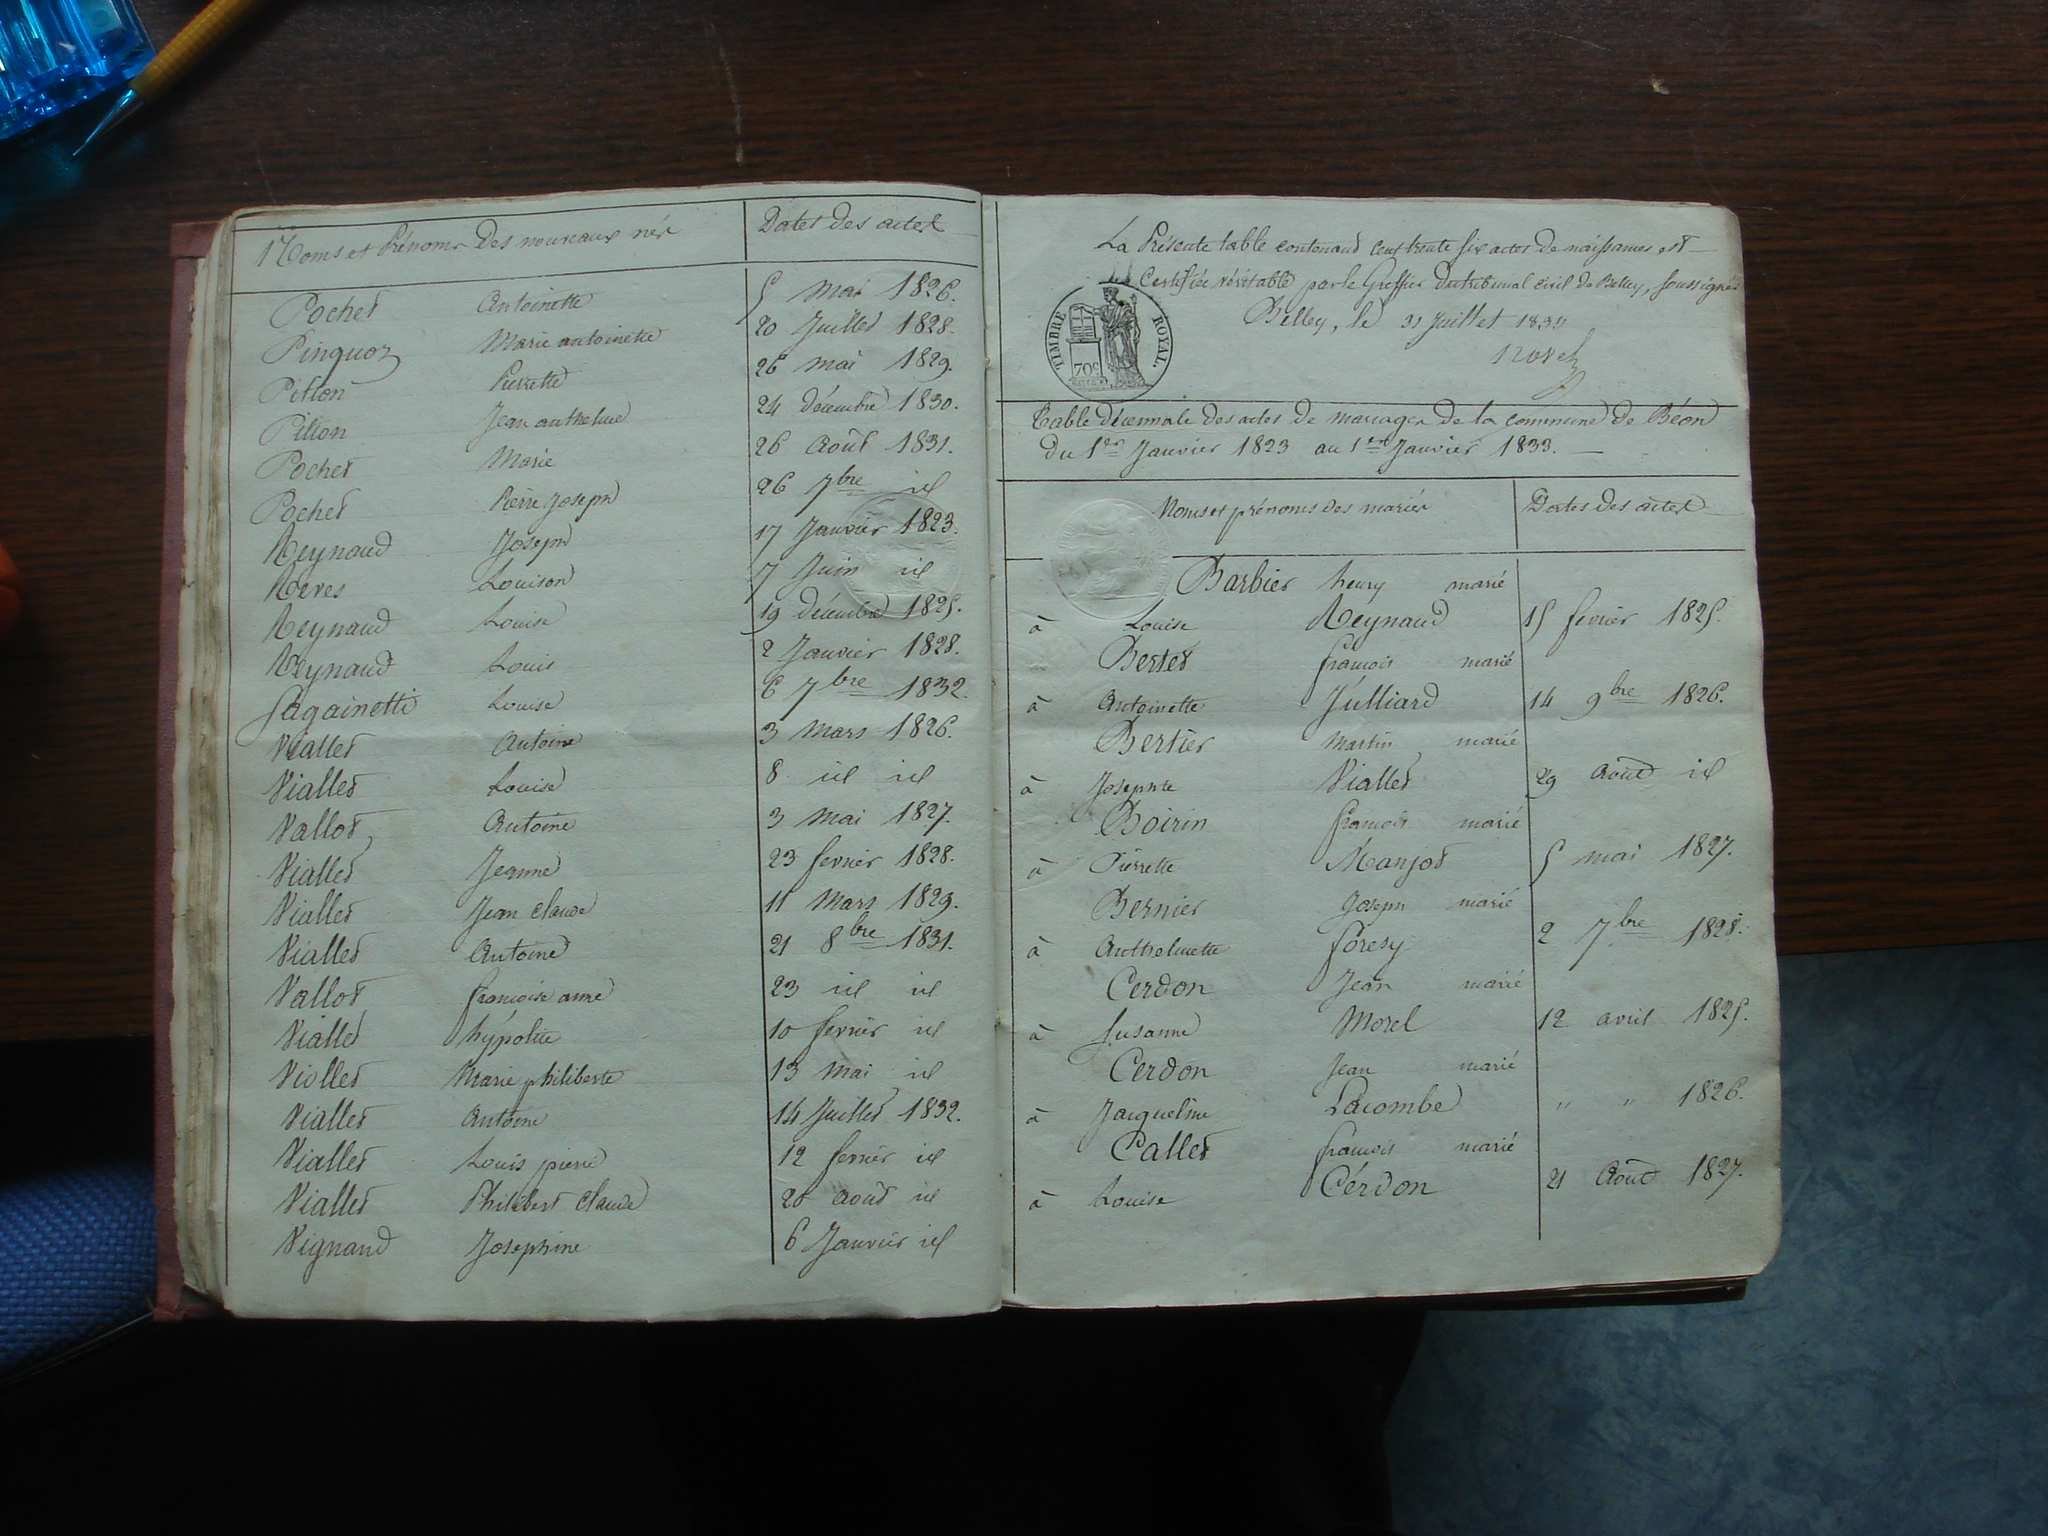 Noms et Prénoms des nouveaux nés Dates des actes
Pochet Antoinette 5 mai 1826.
Pinquoz Marie antoinette 20 Juillet 1828.
Pillon Pierrette 26 mai 1829.
Pillon Jean anthelme 24 décembre 1830.
Pochet Marie 26 Août 1831.
Pochet Pierre Joseph 26 7bre id
Reynaud Joseph 17 Janvier 1823.
Reves Louison 7 Juin id
Reynaud Louise 19 décembre 1825.
Reynaud Louis 2 Janvier 1828.
Sagainetti Louise 6 7bre 1832.
Viallet Antoine 3 mars 1826.
Viallet Louise 8 id id
Vallot Antoine 3 mai 1827.
Viallet Jeanne 23 fevrier 1828.
Viallet Jean claude 11 Mars 1829.
Viallet Antoine 21 8bre 1831.
Vallot francoise anne 23 id id
Viallet hypolite 10 fevrier id
Viollet Marie philiberte 13 mai id
Viallet Antoine 14 Juillet 1832.
Viallet Louis pierre 12 fevrier id
Viallet Philibert claude 20 août id
Vignand Josephine 6 Janvier id
La Présente table contenant cent trente six actes de naissances est
Certifiée véritable par le Greffier du tribunal civil de Belley, soussigné
Belley, le 31 Juillet
TIMBRE ROYAL.
70c
Table décennale des actes de mariages de la commune de Béon
du 1er Janvier 1823 au 1er Janvier 1833.
Noms et prénoms des mariés Dates des actes
Barbier henry marié
à Louise Reynaud 15 fevrier 1825.
Bertet francois marié
à Antoinette Julliard 14 9bre 1826.
Bertier Martin marié
à Josephte Viallet 29 Août id
Boirin francois marié
à Pierrette Manjot 5 mai 1827.
Bernier Joseph marié
à Anthelmette foresy 2 7bre 1828.
Cerdon Jean marié
à Susanne Morel 12 avril 1825.
Cerdon Jean marié
à Jacqueline Lacombe " " 1826.
Callet francois marié
à Louise Cérdon 21 Août 1827.